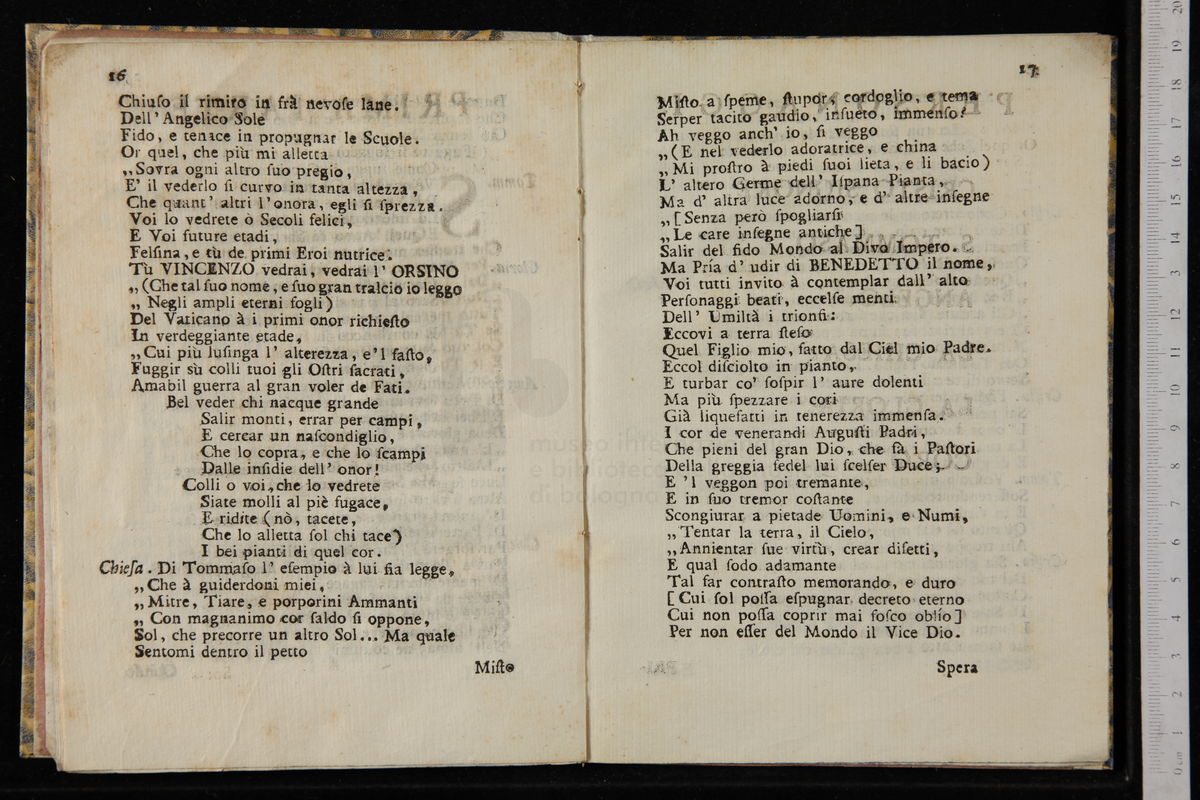 16
Chiuſo il rimiro in frà nevoſe lane.
Dell' Angelico Sole
Fido, e tenace in propugnar le Scuole.
Or quel, che più mi alletta
„Sovra ogni altro ſuo pregio,
E' il vederlo ſi curvo in tanta altezza,
Che quant' altri l'onora, egli ſi ſprezza.
Voi lo vedrete ò Secoli felici,
E Voi future etadi,
Felſina, e tù de primi Eroi nutrice.
Tù VINCENZO vedrai, vedrai l' ORSINO
„(Che tal ſuo nome, e ſuo gran tralcio io leggo
„ Negli ampli eterni fogli)
Del Vaticano à i primi onor richieſto
In verdeggiante etade,
„Cui più luſinga l' alterezza, e'l faſto,
Fuggir sù colli tuoi gli Oſtri ſacrati,
Amabil guerra al gran voler de Fati.
Bel veder chi nacque grande
Salir monti, errar per campi,
E cercar un naſcondiglio,
Che lo copra, e che lo ſcampi
Dalle inſidie dell' onor!
Colli o voi, che lo vedrete
Siate molli al piè fugace,
E ridite (nò, tacete,
Che lo alletta ſol chi tace)
I bei pianti di quel cor.
Chieſa. Di Tommaſo l' eſempio à lui ſia legge,
„Che à guiderdoni miei,
„Mitre, Tiare, e porporini Ammanti
„ Con magnanimo cor ſaldo ſi oppone,
Sol, che precorre un altro Sol... Ma quale
Sentomi dentro il petto
Miſto
17
Miſto a ſpeme, ſtupor, cordoglio, e tema
Serper tacito gaudio, inſueto, immenſo!
Ah veggo anch' io, ſi veggo
„(E nel vederlo adoratrice, e china
„Mi proſtro à piedi ſuoi lieta, e li bacio)
L' altero Germe dell' Iſpana Pianta,
Ma d' altra luce adorno, e d' altre inſegne
„[Senza però ſpogliarſi
„Le care inſegne antiche]
Salir del fido Mondo al Divo Impero.
Ma Pría d' udir di BENEDETTO il nome,
Voi tutti invito à contemplar dall' alto
Perſonaggi beati, eccelſe menti
Dell' Umiltà i trionfi:
Eccovi a terra ſteſo
Quel Figlio mio, fatto dal Ciel mio Padre.
Eccol diſciolto in pianto,
E turbar co' ſoſpir l' aure dolenti
Ma più ſpezzare i cori
Già liquefatti in tenerezza immenſa.
I cor de venerandi Auguſti Padri,
Che pieni del gran Dio, che fà i Paſtori
Della greggia fedel lui ſcelſer Duce;
E 'l veggon poi tremante,
E in ſuo tremor coſtante
Scongiurar a pietade Uomini, e Numi,
„Tentar la terra, il Cielo,
„Annientar ſue virtù, crear difetti,
E qual ſodo adamante
Tal far contraſto memorando, e duro
[Cui ſol poſſa eſpugnar decreto eterno
Cui non poſſa coprir mai foſco oblío]
Per non eſſer del Mondo il Vice Dio.
Spera